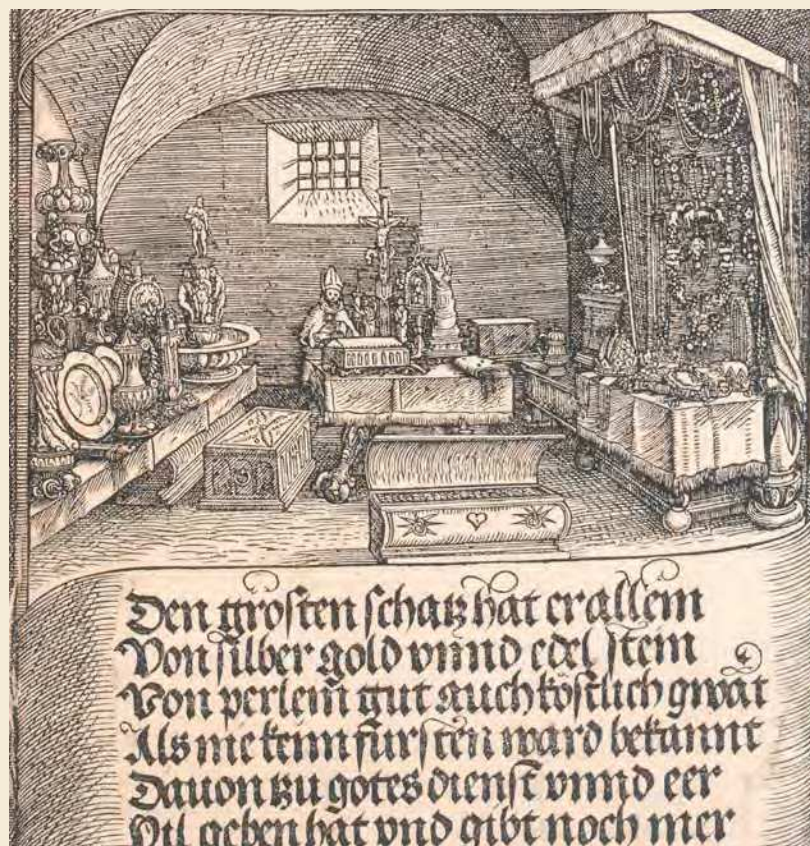 Den grösten schatz hat er allein
Von silber gold vnnd edel stein
Von perlein gut auch köstlich gwāt
Als nie keinn fürsten ward bekannt
Dauon zu gotes dienst vnnd eer
Vil geben hat vnd gibt noch mer